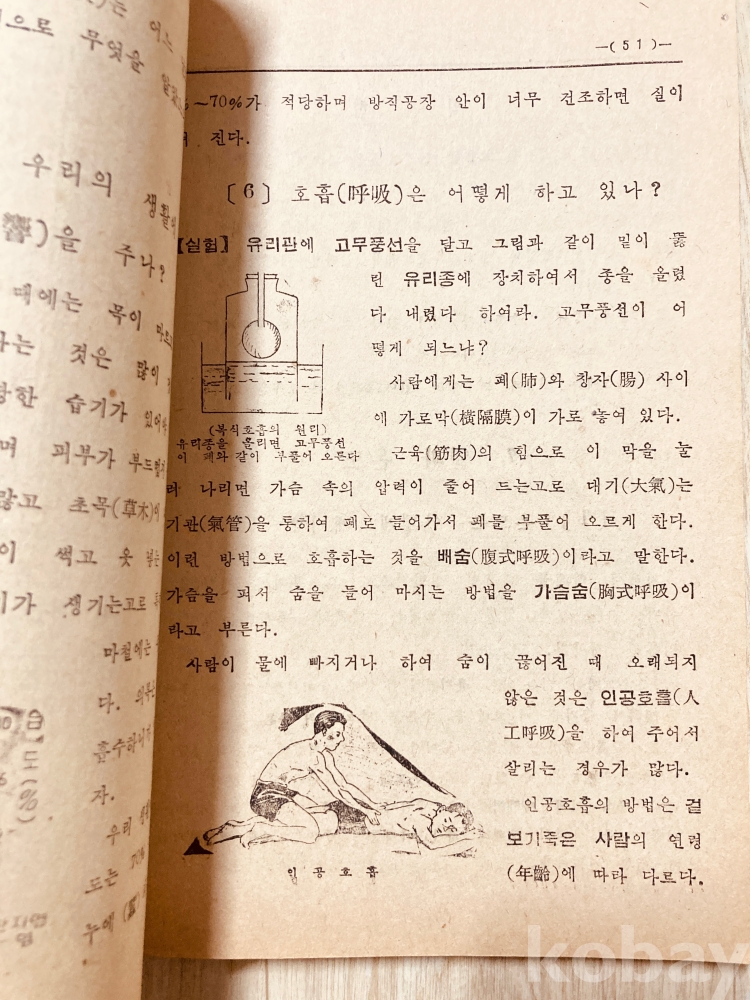 는 어느
으로 무엇을
우리의 생활에
(響)을 주나?
때에는 목이
라는 것은 많이
당한 습기가 있어야
며 피부가 부드럽
않고 초목(草木)이
이 썩고 옷
기가 생기는고로
마철에는
다. 의복은
흡수하니까
자.
우리
도는 70%
누에
도(%)
—(51)—
~70%가 적당하며 방직공장 안이 너무 건조하면 실이
진다.
[6] 호흡(呼吸)은 어떻게 하고 있나?
[실험] 유리관에 고무풍선을 달고 그림과 같이 밑이 뚫
린 유리종에 장치하여서 종을 올렸
다 내렸다 하여라. 고무풍선이 어
떻게 되느냐?
사람에게는 폐(肺)와 창자(腸) 사이
에 가로막(橫隔膜)이 가로 놓여 있다.
(복식호흡의 원리)
유리종을 올리면 고무풍선
이 폐와 같이 부풀어 오른다
근육(筋肉)의 힘으로 이 막을 눌
러 나리면 가슴 속의 압력이 줄어 드는고로 대기(大氣)는
기관(氣管)을 통하여 폐로 들어가서 폐를 부풀어 오르게 한다.
이런 방법으로 호흡하는 것을 배숨(腹式呼吸)이라고 말한다.
가슴을 펴서 숨을 들어 마시는 방법을 가슴숨(胸式呼吸)이
라고 부른다.
사람이 물에 빠지거나 하여 숨이 끊어진 때 오래되지
않은 것은 인공호흡(人
工呼吸)을 하여 주어서
살리는 경우가 많다.
인공호흡의 방법은 겉
보기죽은 사람의 연령
(年齡)에 따라 다르다.
인공호흡
kobay